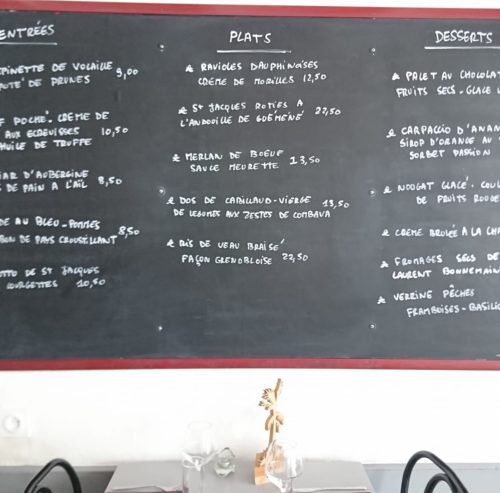 ENTRÉES
PINETTE DE VOLAILLE 9,00
DE PRUNES
POCHÉ. CREME DE
AUX ECREVISSES 10,50
HUILE DE TRUFFE
D'AUBERGINE
DE PAIN A L'AIL 8,50
DE AU BLEU-POMMES
DE PAYS CROUSTILLANT 8,50
DE St JACQUES
COURGETTES 10,50
PLATS
RAVIOLES DAUPHINOISES
CREME DE MORILLES 12,50
St JACQUES ROTIES A
L'ANDOUILLE DE GUEMENÉ 22,50
MERLAN DE BOEUF
SAUCE MEURETTE 13,50
DOS DE CABILLAUD-VIERGE 13,50
DE LEGUMES AUX ZESTES DE COMBAVA
RIS DE VEAU BRAISÉ
FAÇON GRENOBLOISE 22,50
DESSERTS
PALET AU CHOCOLAT
FRUITS SECS-GLACE
CARPACCIO D'ANAN
SIROP D'ORANGE AU
SORBET PASSION
NOUGAT GLACÉ. COUL
DE FRUITS ROUGE
CREME BRULÉE A LA CHA
FROMAGES SECS DE
LAURENT BONNEMAIN
VERRINE PÊCHES
FRAMBOISES-BASILIC